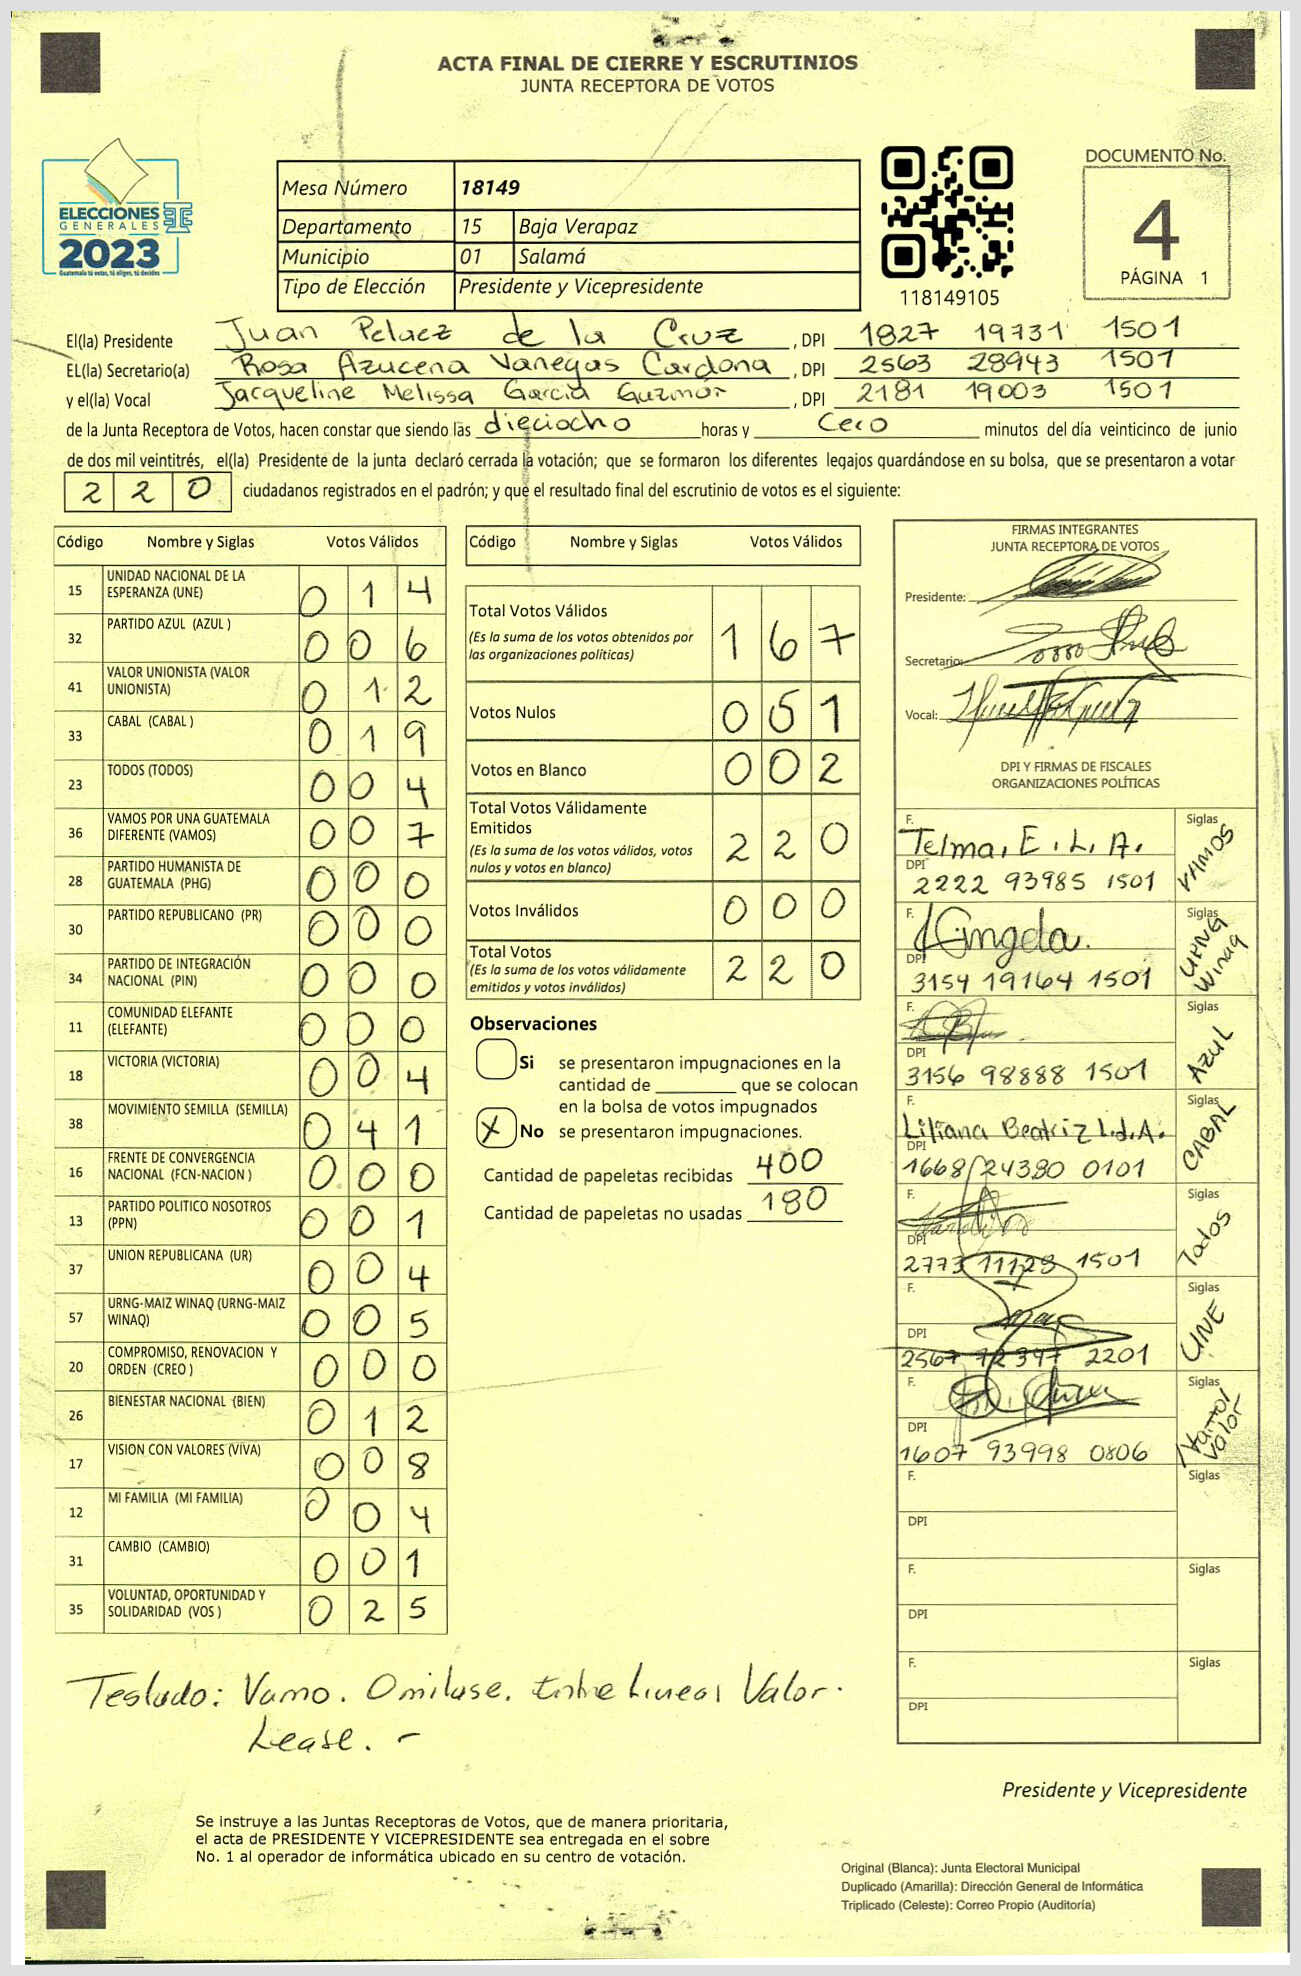 ACTA FINAL DE CIERRE Y ESCRUTINIOS
JUNTA RECEPTORA DE VOTOS
ELECCIONES
GENERALES
2023
Guatemala tú votas, tú eliges, tú decides
Mesa Número 18149
Departamento 15 Baja Verapaz
Municipio 01 Salamá
Tipo de Elección Presidente y Vicepresidente
118149105
DOCUMENTO No.
4
PÁGINA 1
El(la) Presidente Juan Pelaez de la Cruz, DPI 1827 19731 1501
EL(la) Secretario(a) Rosa Azucena Vanegas Cardona, DPI 2563 28943 1501
y el(la) Vocal Jacqueline Melissa García Guzmán, DPI 2181 19003 1501
de la Junta Receptora de Votos, hacen constar que siendo las dieciocho horas y Cero minutos del día veinticinco de junio
de dos mil veintitrés, el(la) Presidente de la junta declaró cerrada la votación; que se formaron los diferentes legajos quardándose en su bolsa, que se presentaron a votar
220 ciudadanos registrados en el padrón; y que el resultado final del escrutinio de votos es el siguiente:
Código Nombre y Siglas Votos Válidos
15 UNIDAD NACIONAL DE LA ESPERANZA (UNE) 014
32 PARTIDO AZUL (AZUL ) 006
41 VALOR UNIONISTA (VALOR UNIONISTA) 012
33 CABAL (CABAL ) 019
23 TODOS (TODOS) 004
36 VAMOS POR UNA GUATEMALA DIFERENTE (VAMOS) 007
28 PARTIDO HUMANISTA DE GUATEMALA (PHG) 000
30 PARTIDO REPUBLICANO (PR) 000
34 PARTIDO DE INTEGRACIÓN NACIONAL (PIN) 000
11 COMUNIDAD ELEFANTE (ELEFANTE) 000
18 VICTORIA (VICTORIA) 004
38 MOVIMIENTO SEMILLA (SEMILLA) 041
16 FRENTE DE CONVERGENCIA NACIONAL (FCN-NACION ) 000
13 PARTIDO POLITICO NOSOTROS (PPN) 001
37 UNION REPUBLICANA (UR) 004
57 URNG-MAIZ WINAQ (URNG-MAIZ WINAQ) 005
20 COMPROMISO, RENOVACION Y ORDEN (CREO ) 000
26 BIENESTAR NACIONAL (BIEN) 012
17 VISION CON VALORES (VIVA) 008
12 MI FAMILIA (MI FAMILIA) 004
31 CAMBIO (CAMBIO) 001
35 VOLUNTAD, OPORTUNIDAD Y SOLIDARIDAD (VOS ) 025
Código Nombre y Siglas Votos Válidos
Total Votos Válidos 167
(Es la suma de los votos obtenidos por
las organizaciones políticas)
Votos Nulos 051
Votos en Blanco 002
Total Votos Válidamente
Emitidos 220
(Es la suma de los votos válidos, votos
nulos y votos en blanco)
Votos Inválidos 000
Total Votos 220
(Es la suma de los votos válidamente
emitidos y votos inválidos)
Observaciones
Si se presentaron impugnaciones en la
cantidad de ________ que se colocan
en la bolsa de votos impugnados
X No se presentaron impugnaciones.
Cantidad de papeletas recibidas 400
Cantidad de papeletas no usadas 180
FIRMAS INTEGRANTES
JUNTA RECEPTORA DE VOTOS
Presidente:
Secretario:
Vocal:
DPI Y FIRMAS DE FISCALES
ORGANIZACIONES POLÍTICAS
F. Telma. E. L. A. Siglas VAMOS
DPI 2222 93985 1501
F. Siglas URNG Winaq
DPI 3154 19164 1501
F. Siglas Azul
DPI 3156 98888 1501
F. Liliana Beatriz L.d.A. Siglas CABAL
DPI 1668 24380 0101
F. Siglas Todos
DPI 2773 11123 1501
F. Siglas UNE
DPI 2567 72347 2201
F. Siglas Valor
DPI 1607 93998 0806
F. Siglas
DPI
F. Siglas
DPI
F. Siglas
DPI
Testado: Vamo. Omitase. Entre Lineas Valor.
Lease. -
Presidente y Vicepresidente
Se instruye a las Juntas Receptoras de Votos, que de manera prioritaria,
el acta de PRESIDENTE Y VICEPRESIDENTE sea entregada en el sobre
No. 1 al operador de informática ubicado en su centro de votación.
Original (Blanca): Junta Electoral Municipal
Duplicado (Amarilla): Dirección General de Informática
Triplicado (Celeste): Correo Propio (Auditoría)